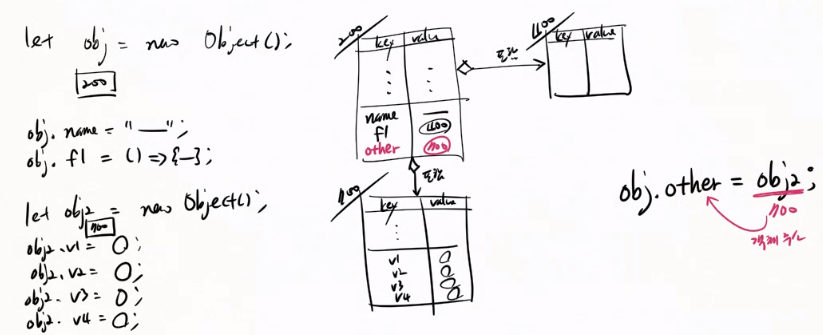 let obj = new Object();
200
obj.name = "—";
obj.f1 = () => {—};
let obj2 = new Object();
700
obj2.v1 = 0;
obj2.v2 = 0;
obj2.v3 = 0;
obj2.v4 = 0;
200
key value
name —
f1
other 700
포함
key value
포함
700
key value
v1 0
v2 0
v3 0
v4 0
obj.other = obj2;
700
객체 주소